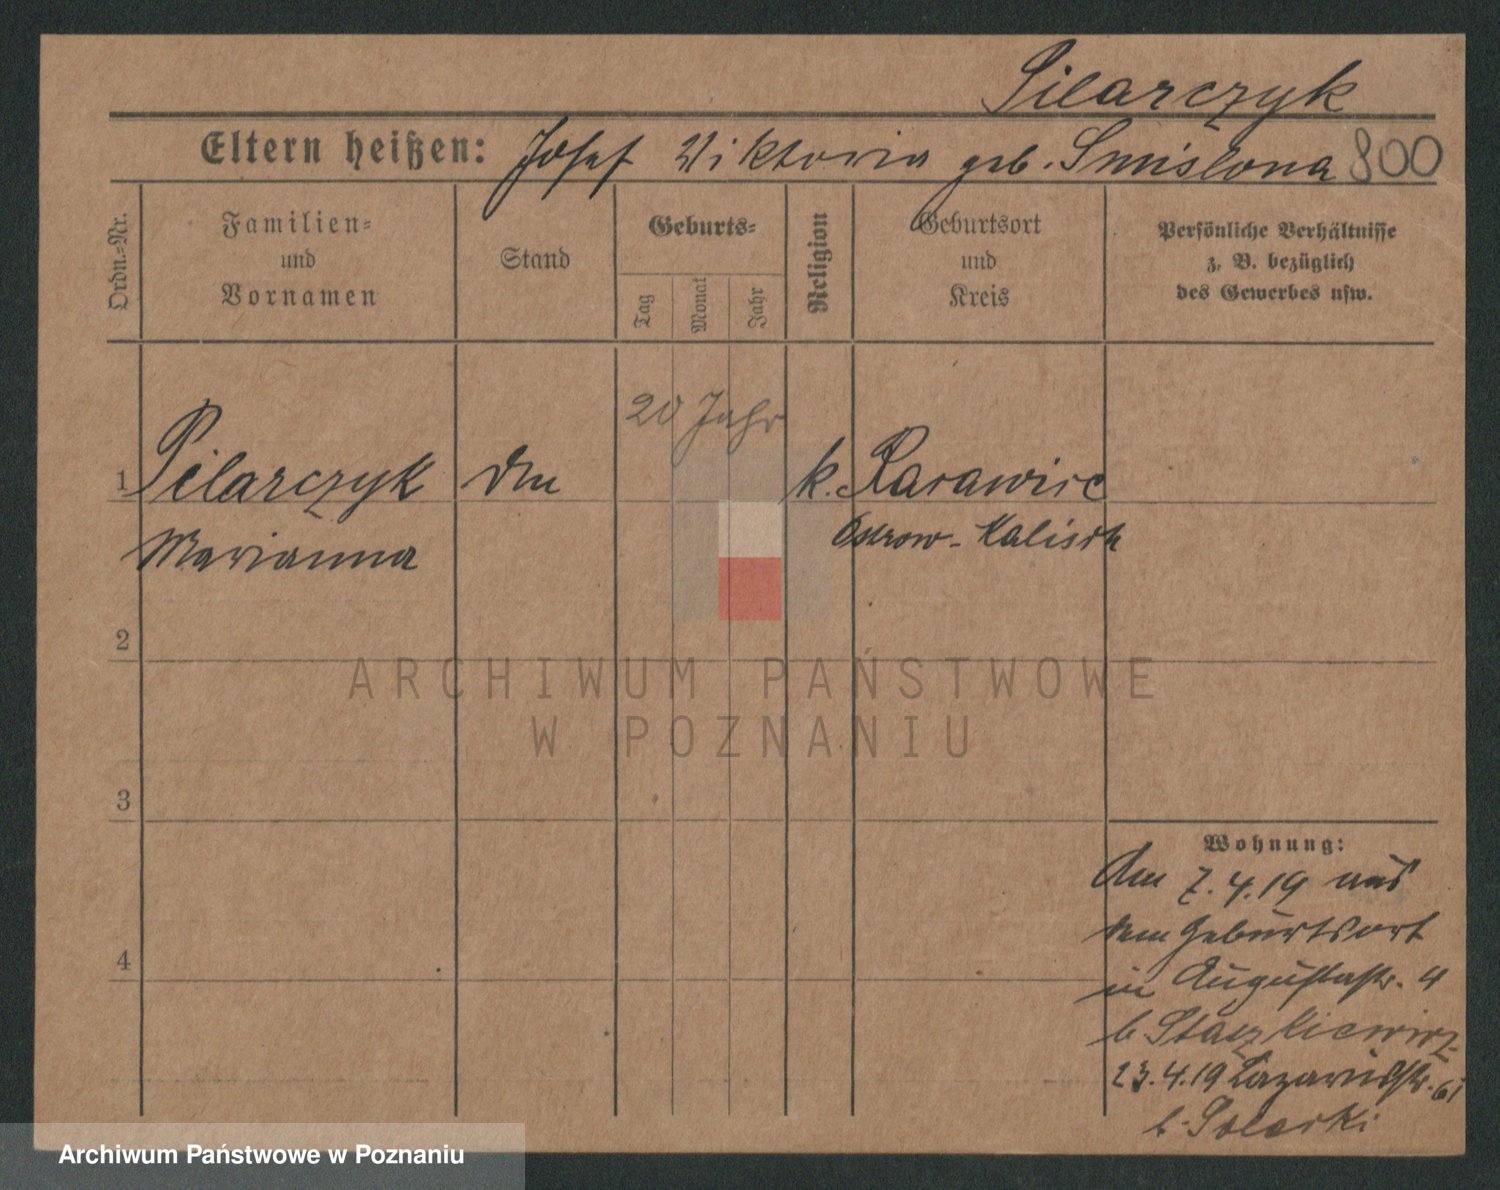 Pilarczyk
Eltern heißen: Josef Viktoria geb. Smislona 800
Ordn.=Nr.
Familien=
und
Vornamen
Stand
Geburts=
Tag
Monat
Jahr
Religion
Geburtsort
und
Kreis
Persönliche Verhältnisse
z. B. bezüglich
des Gewerbes usw.
20 Jahr
1 Pilarczyk k. Rarawisc
Marianna Ostrow-Kalisch
2
3
4
Wohnung:
Am 7.4.19 aus
dem Geburtsort
in Augustastr. 4
b. Staszkiewicz
23.4.19 Lazarusstr. 61
b. Solarski
ARCHIWUM PAŃSTWOWE
W POZNANIU
Archiwum Państwowe w Poznaniu